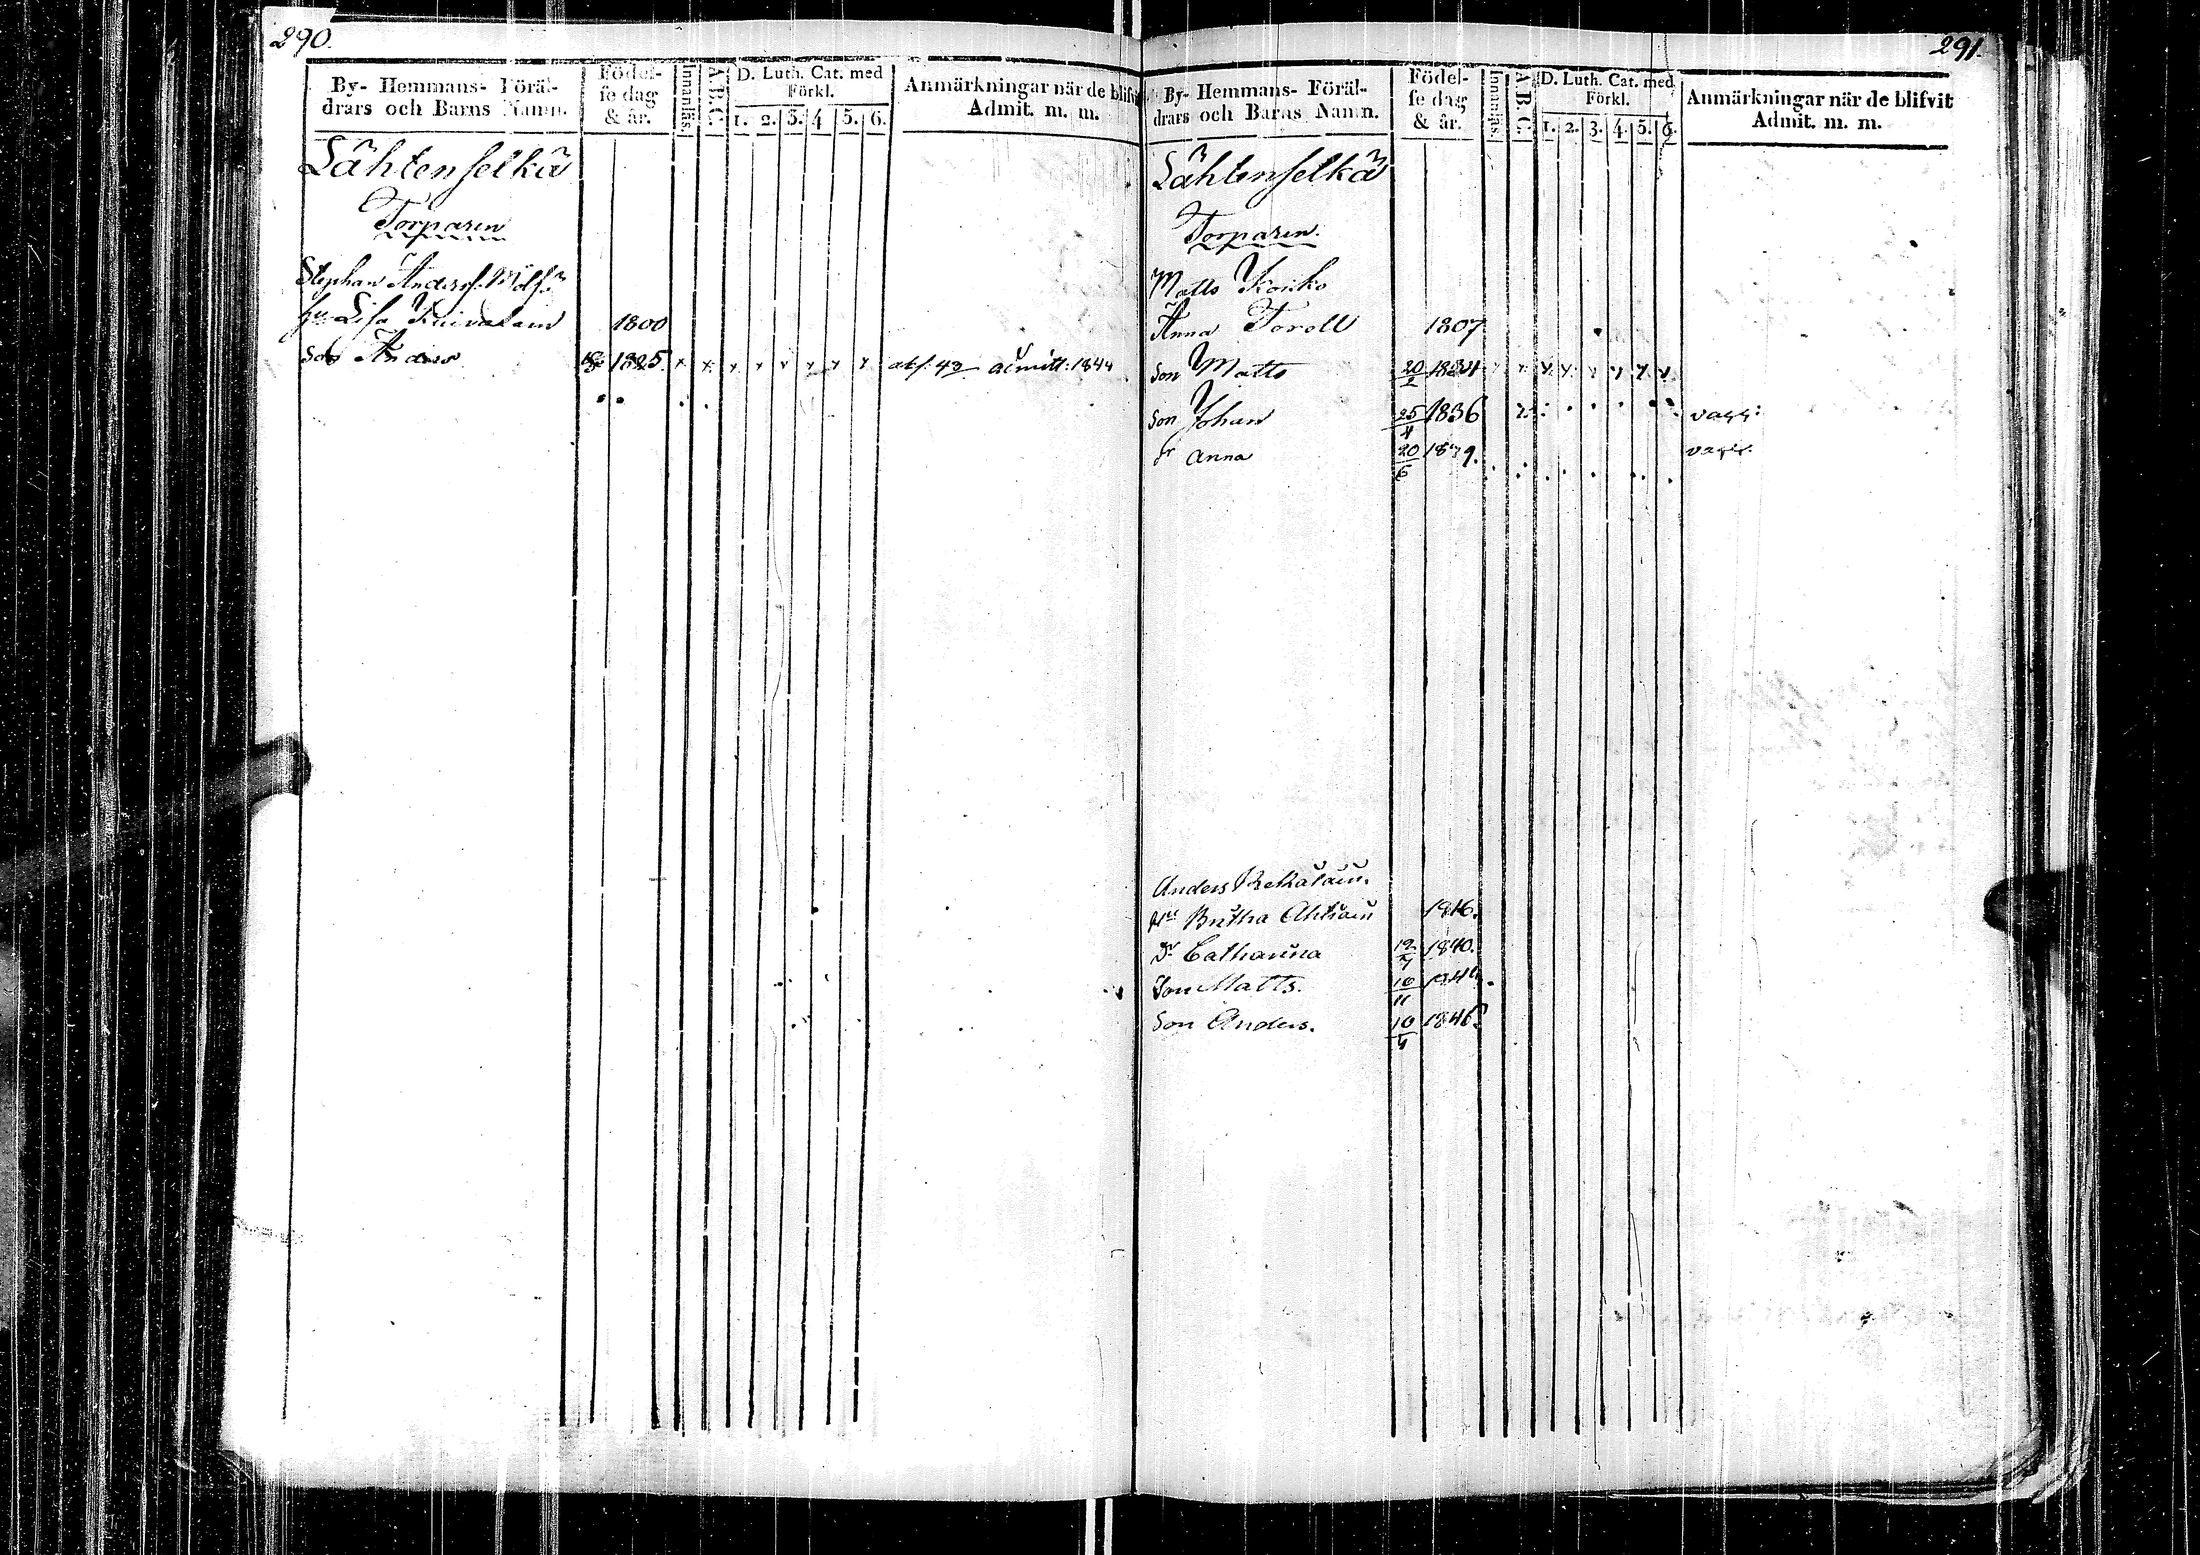 290.
By- Hemmans- Föräl-
drars och Barns Namn.
Födel-
se dag
& år.
Innanläs.
A.B.C.
D. Luth. Cat. med
Förkl.
1. 2. 3. 4 5. 6.
Anmärkningar när de blifvit
Admit. m. m.
Lähtenselkä
Torparen
Stephan Anderss.
hu Lisa 1800
Son Anders 1825. x x x x x x x x admitt: 1844
291.
By- Hemmans- Föräl-
drars och Barns Namn.
Födel-
se dag
& år.
Innanläs.
A.B.C.
D. Luth. Cat. med
Förkl.
1. 2. 3. 4. 5. 6.
Anmärkningar när de blifvit
Admit. m. m.
Lähtenselkä
Torparen.
Matts Koicko
Anna Torell 1807
Son Matts 20/2 1834 x x x x x x x x
Son Johan 25/4 1836
Dr Anna 20/6
Anders
Hu Britha 1816.
Dr Catharina 1840.
Son Matts. 10/11
Son Anders. 1846.